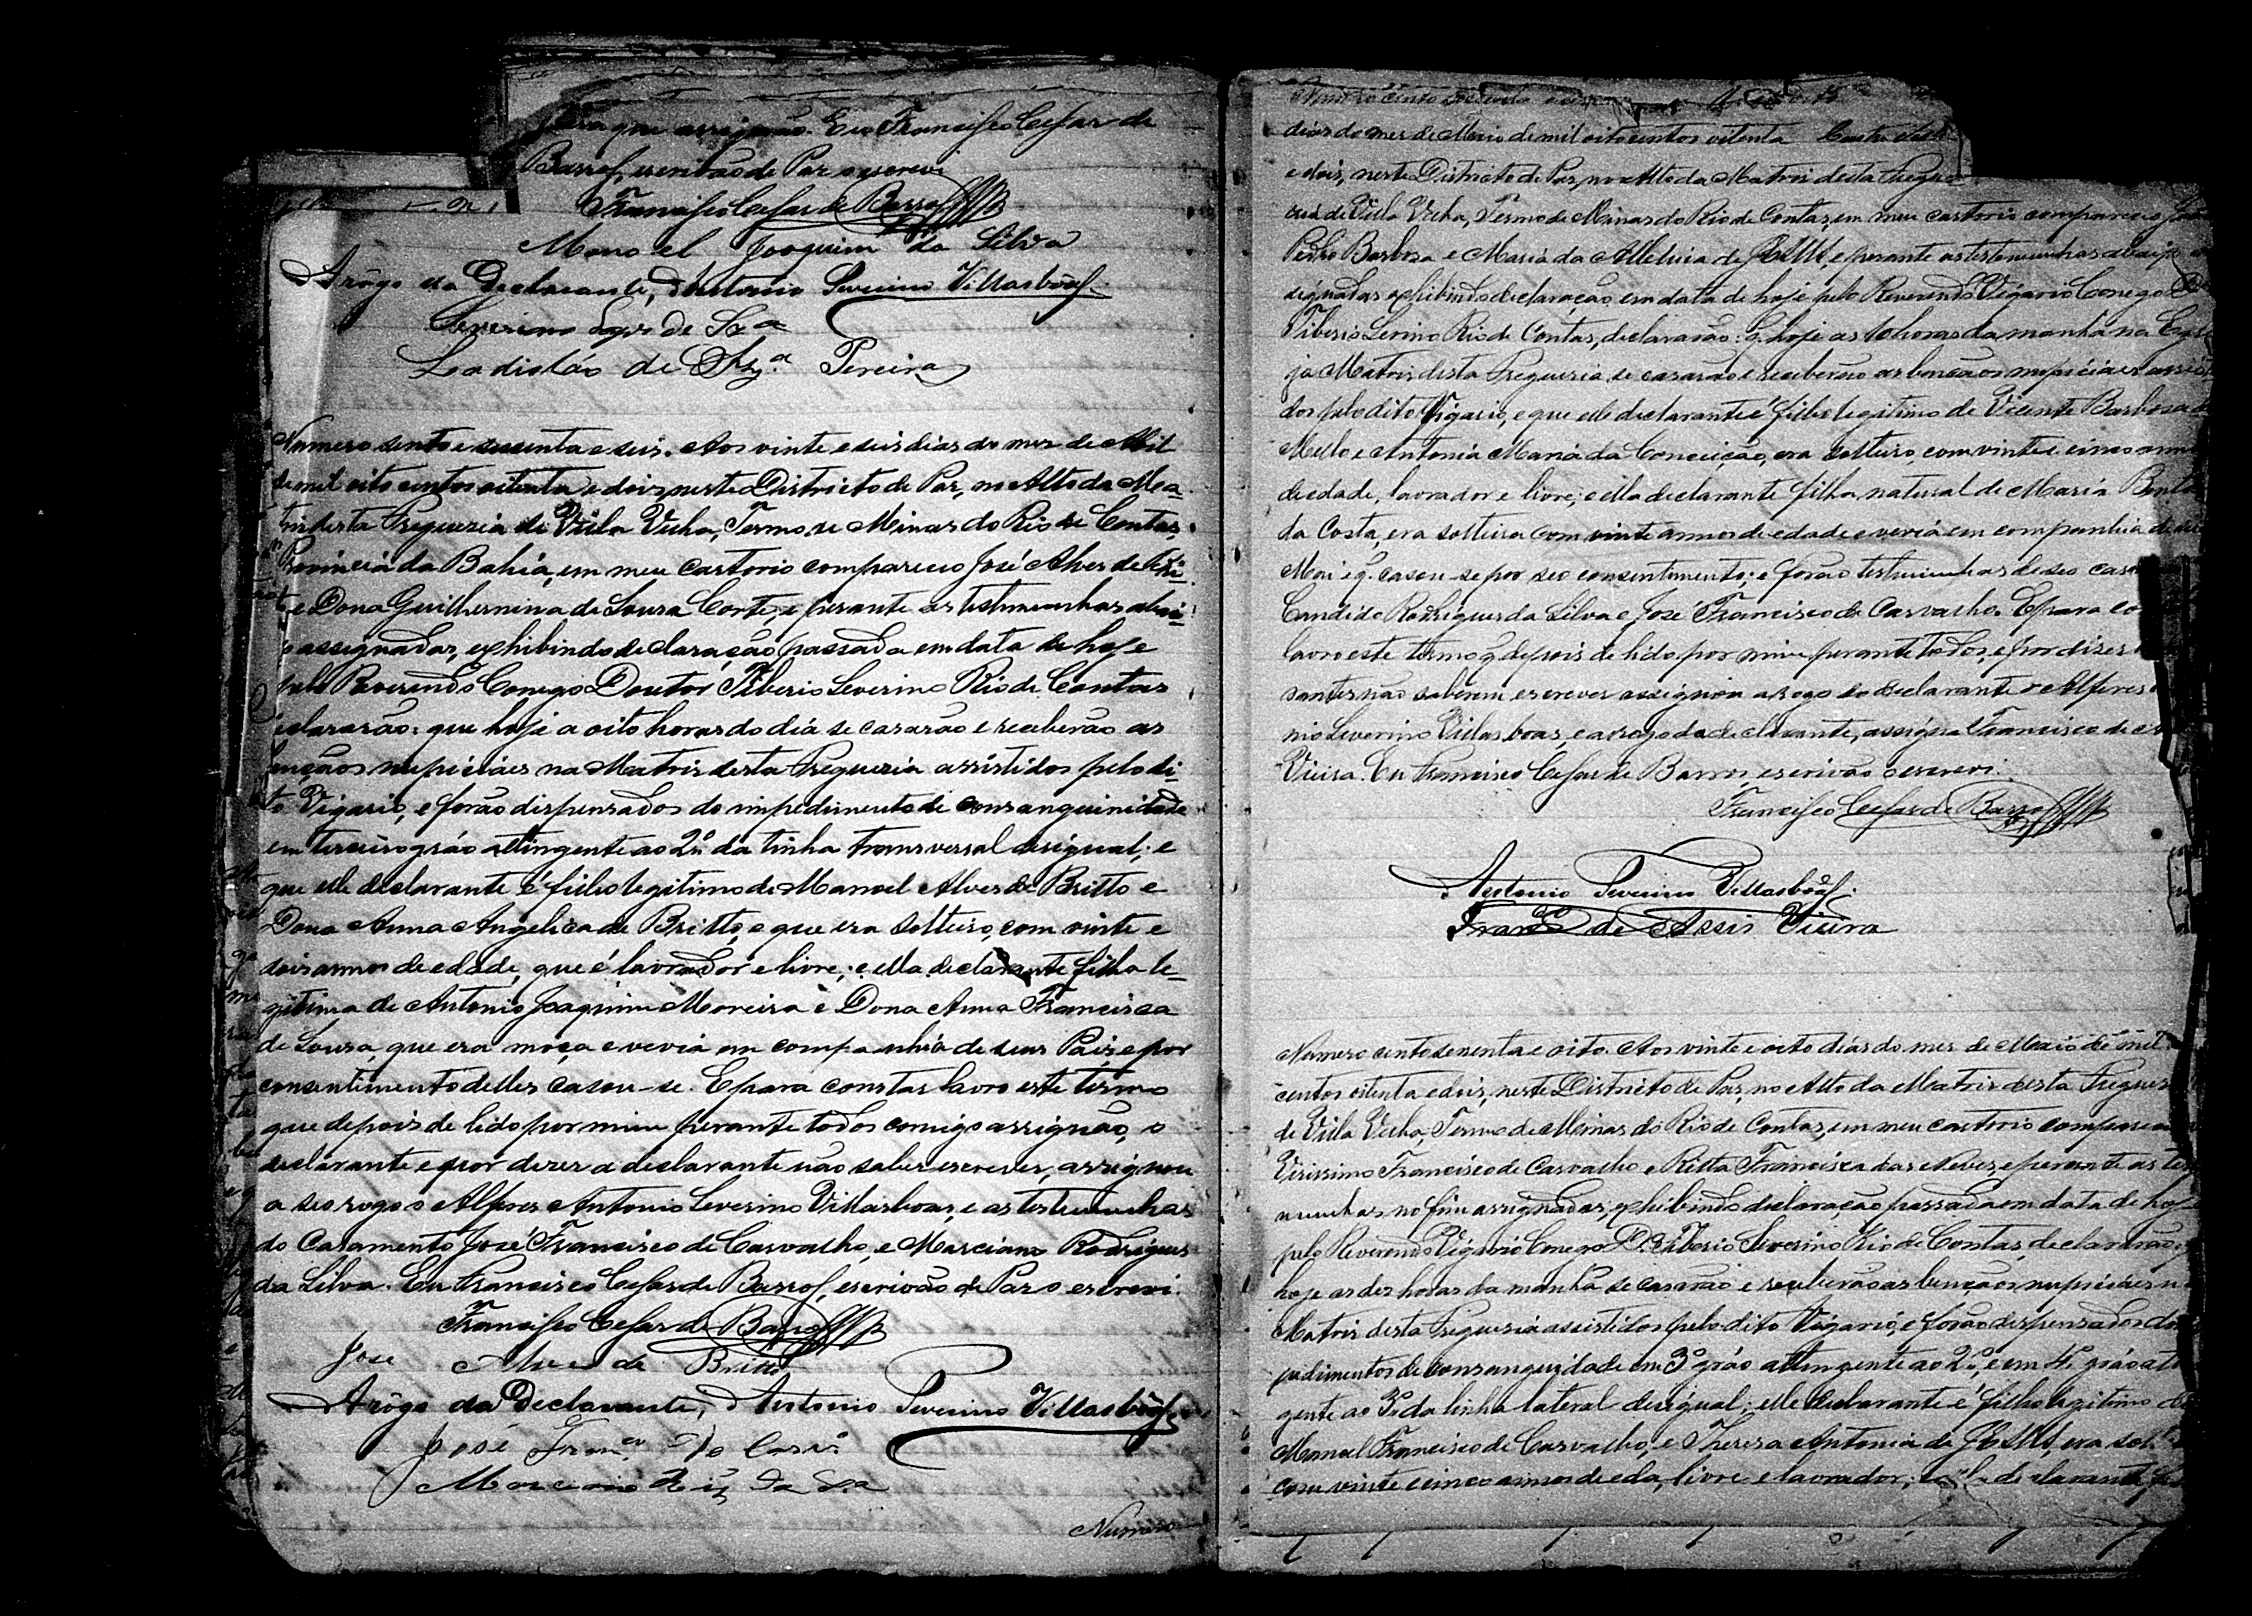 que assignão. Eu Francisco Cesar de
Barros, escrivão de Paz o escrevi
Francisco Cesar de Barros
Manoel Joaquim da Silva
Arôgo da Declarante, Antonio Severino Villasbôas.
Severino de Sza
Ladisláo de Pereira
Numero sento e sesenta e seis. Aos vinte e seis dias do mez de Abil
de mil oito centos oitenta e dois, neste Districto de Paz, no Alto da Ma-
triz desta Freguezia de Villa Velha, Termo de Minas do Rio de Contas,
Provincia da Bahia, em meu cartorio compareceo José Alves de Bri-
to e Dona Guilhermina de Souza Corte, e perante as testemunhas abai-
xo assignadas, exhibindo declaração passada em data de hoje
pelo Reverendo Conego Doutor Tiberio Severino Rio de Contas
declararão: que hoje a oito horas do dia se casarão e receberão as
bençãos nupiciáes na Matriz desta Freguezia assistidos pelo di-
to Vigario, e forão dispensados do impedimento de consanguinidade
em terceiro gráo attingente ao 2º da linha transversal desigual; e
que elle declarante é filho legitimo de Manoel Alves de Britto e
Dona Anna Angelica de Britto, e que era solteiro, com vinte e
seis annos de edade, que é lavrador e livre; e ella declarante filha le-
gitima de Antonio Joaquim Moreira e Dona Anna Francisca
de Souza, que era moça e vevia em companhia de seus Pais e por
consentimento delles casou-se. E para constar lavro este termo
que depois de lido por mim perante todos comigo assignão, o
declarante e por dizer a declarante não saber escrever, assignou
a seo rogo o Alferes Antonio Severino Villasboas, e as testemunhas
do Casamento José Francisco de Carvalho, e Marciano Rodrigues
da Silva. Eu Francisco Cesar de Barros, escrivão de Paz o escrevi.
Francisco Cesar de Barros
José Alves de Britto
Arôgo da Declarante, Antonio Severino Villasbôas.
José Franco de Carvo
Marciano Roiz da Sa
Numero
Numero cento secenta
dias do mez de Maio de mil oitocentos oitenta
e dois, neste Districto de Paz, no Alto da Matriz desta Fregue
zia de Villa Velha, Termo de Minas do Rio de Contas, em meu cartorio compareceo
Pedro Barbosa e Maria da Alleluia de e perante as testemunhas abaixo as
signadas exhibindo declaração em data de hoje pelo Reverendo Vigario Conego
Tiberio Severino Rio de Contas, declararão: q. hoje as 10 horas da manhã na Egre
ja Matriz desta Freguezia, se casarão e receberão as bençãos nupiciáes assisti
dos pelo dito Vigario, e que elle declarante é filho legitimo de Vicente Barbosa de
Mello e Antonia Maria da Conceição, era solteiro, com vinte e cinco annos
de edade, lavrador e livre; e ella declarante filha natural de Maria Bento
da Costa, era solteira com vinte annos de edade e vevia em companhia de sua
Mai e q. casou-se por seo consentimento; e forão testemunhas de seo casa
Candido Rodrigues da Silva e José Francisco de Carvalho. E para co
lavro este termo q. depois de lido por mim perante todos, e por dizer
santes não saberem escrever assignou a rogo do declarante o Alferes
nio Severino Villas boas, e a rogo da declarante, assigna Francisco de
Vieira. Eu Francisco Cesar de Barros, escrivão o escrevi.
Francisco Cesar de Barros
Antonio Severino Villasbôas.
Franco de Assis Vieira
Numero cento sesenta e oito. Aos vinte e oito dias do mez de Maio de mil
centos oitenta e dois, neste Districto de Paz, no Alto da Matriz desta Fregue
de Villa Velha, Termo de Minas do Rio de Contas, em meu cartorio comparece
Virissimo Francisco de Carvalho e Ritta Francisca das Neves, e perante as tes
munhas no fim assignadas, exhibindo declaração passada em data de hoj
pelo Reverendo Vigario Conego Dr. Tiberio Severino Rio de Contas, declararão
hoje as dez horas da manhã se casarão e receberão as bençãos nupiciáes n
Matriz desta Freguezia assistidos pelo dito Vigario, e forão dispensados do
pedimentos de consanguidade em 3º gráo attingente ao 2º, e em 4º gráo att
gente ao 3º da linha lateral desigual; elle declarante é filho legitimo de
Manoel Francisco de Carvalho, e Theresa Antonia de era sol
com vinte e cinco annos de eda, livre e lavrador; e ella declarante